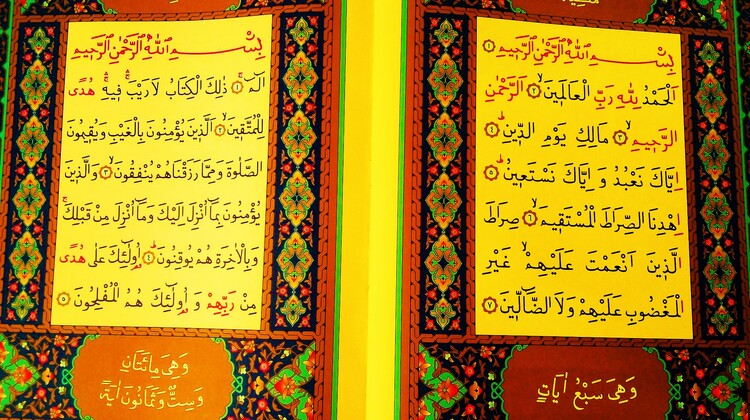 بِسْمِ اللّٰهِ الرَّحْمٰنِ الرَّحٖيمِ ﴿١﴾
اَلْحَمْدُ لِلّٰهِ رَبِّ الْعَالَمٖينَۙ ﴿٢﴾ اَلرَّحْمٰنِ
الرَّحٖيمِۙ ﴿٣﴾ مَالِكِ يَوْمِ الدّٖينِؕ ﴿٤﴾
اِيَّاكَ نَعْبُدُ وَ اِيَّاكَ نَسْتَعٖينُؕ ﴿٥﴾
اِهْدِنَا الصِّرَاطَ الْمُسْتَقٖيمَۙ ﴿٦﴾ صِرَاطَ
الَّذٖينَ اَنْعَمْتَ عَلَيْهِمْۙ غَيْرِ
الْمَغْضُوبِ عَلَيْهِمْ وَلَا الضَّٓالّٖينَ ﴿٧﴾
وَهِىَ سَبْعُ اٰيَاتٍ
بِسْمِ اللّٰهِ الرَّحْمٰنِ الرَّحٖيمِ
الٓمٓۚ ﴿١﴾ ذٰلِكَ الْكِتَابُ لَا رَيْبَۚۛ فٖيهِۚۛ هُدًى
لِلْمُتَّقٖينَۙ ﴿٢﴾ اَلَّذٖينَ يُؤْمِنُونَ بِالْغَيْبِ وَيُقٖيمُونَ
الصَّلٰوةَ وَمِمَّا رَزَقْنَاهُمْ يُنْفِقُونَۙ ﴿٣﴾ وَالَّذٖينَ
يُؤْمِنُونَ بِمَٓا اُنْزِلَ اِلَيْكَ وَمَٓا اُنْزِلَ مِنْ قَبْلِكَۚ
وَبِالْاٰخِرَةِ هُمْ يُوقِنُونَؕ ﴿٤﴾ اُو۬لٰٓئِكَ عَلٰى هُدًى
مِنْ رَبِّهِمْ وَ اُو۬لٰٓئِكَ هُمُ الْمُفْلِحُونَ ﴿٥﴾
وَهِىَ مِائَتَانِ
وَسِتٌّ وَثَمَانُونَ اٰيَةً